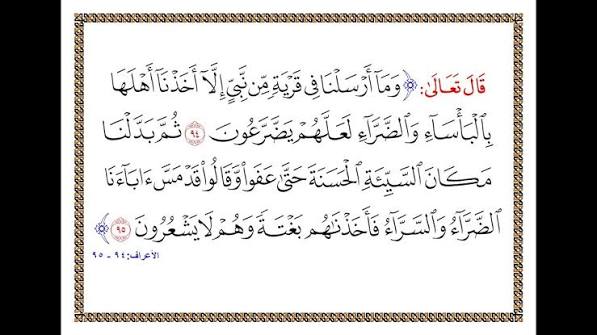 قَالَ تَعَالَىٰ: ﴿وَمَآ أَرۡسَلۡنَا فِي قَرۡيَةٖ مِّن نَّبِيٍّ إِلَّآ أَخَذۡنَآ أَهۡلَهَا
بِٱلۡبَأۡسَآءِ وَٱلضَّرَّآءِ لَعَلَّهُمۡ يَضَّرَّعُونَ ٩٤ ثُمَّ بَدَّلۡنَا
مَكَانَ ٱلسَّيِّئَةِ ٱلۡحَسَنَةَ حَتَّىٰ عَفَواْ وَّقَالُواْ قَدۡ مَسَّ ءَابَآءَنَا
ٱلضَّرَّآءُ وَٱلسَّرَّآءُ فَأَخَذۡنَٰهُم بَغۡتَةٗ وَهُمۡ لَا يَشۡعُرُونَ ٩٥﴾
الأعراف: ٩٤ - ٩٥